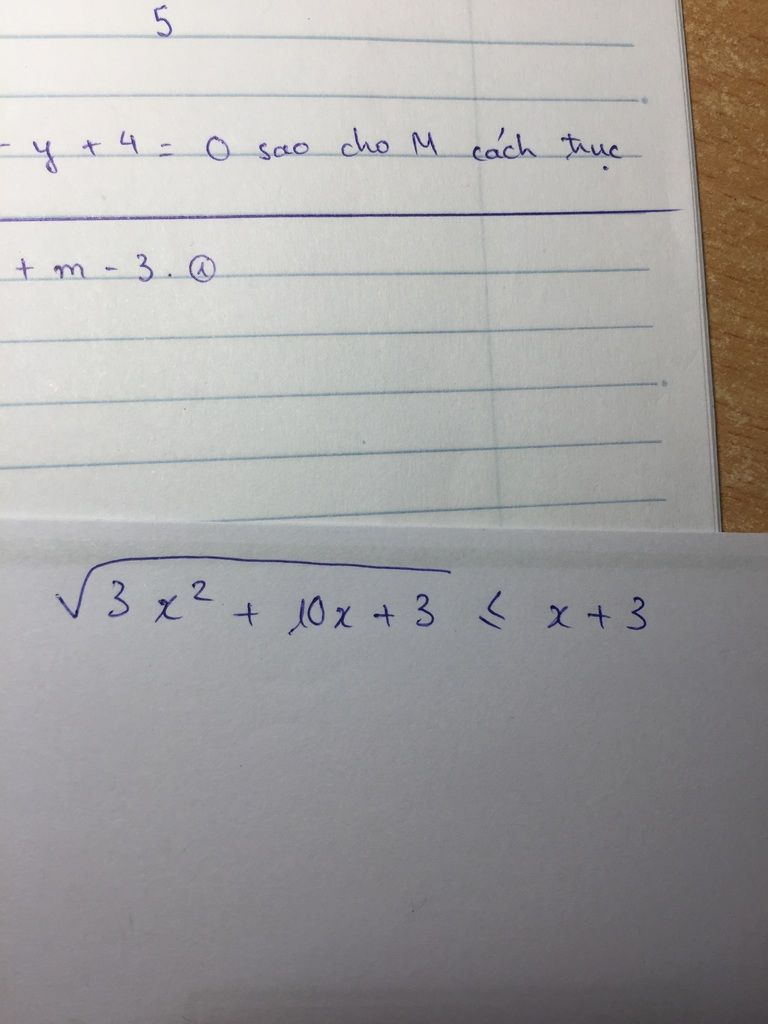 5
- y + 4 = 0 sao cho M cách trục
+ m - 3. ①
√3x² + 10x + 3 ≤ x + 3